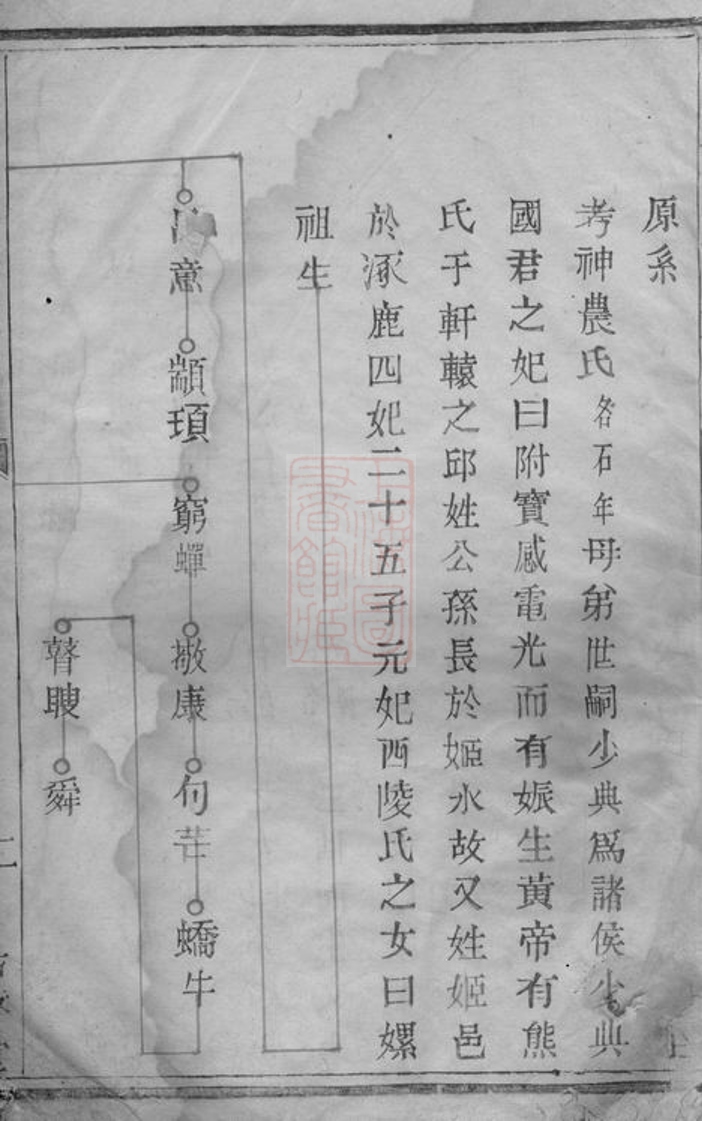 原系
考神農氏名石年母弟世嗣少典爲諸侯少典
國君之妃曰附寶感電光而有娠生黃帝有熊
氏于軒轅之邱姓公孫長於姬水故又姓姬邑
於涿鹿四妃二十五子元妃西陵氏之女曰嫘
祖生
意 顓頊 窮蟬 敬康 句芒 蟜牛
瞽瞍 舜
二